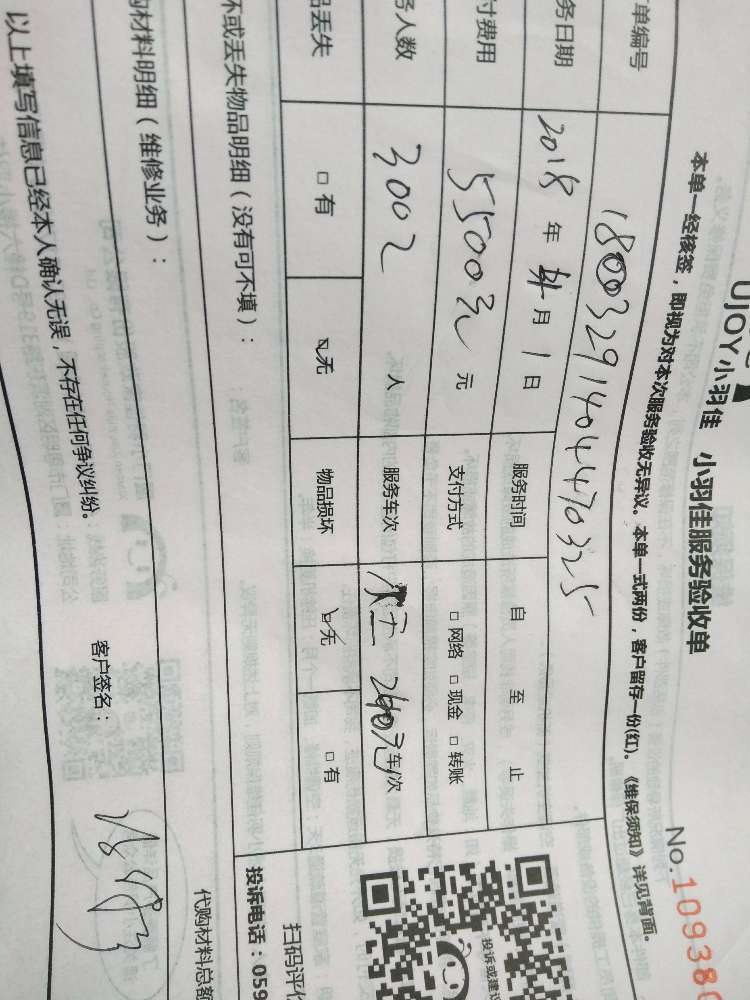 UJOY小羽佳 小羽佳服务验收单
No.10938
本单一经核签，即视为对本次服务验收无异议。本单一式两份，客户留存一份(红)。《维保须知》详见背面。
单编号 18003291404470325
务日期 2018年4月1日 服务时间 自 至 止
付费用 5500元 元 支付方式 □网络 □现金 □转账
务人数 300 人 服务车次 240元 车/次
品丢失 □有 ☑无 物品损坏 ☑无 □有
坏或丢失物品明细（没有可不填）：
扫码评价
投诉或建议
投诉电话：059
购材料明细（维修业务）：
代购材料总额
以上填写信息已经本人确认无误，不存在任何争议纠纷。
客户签名：